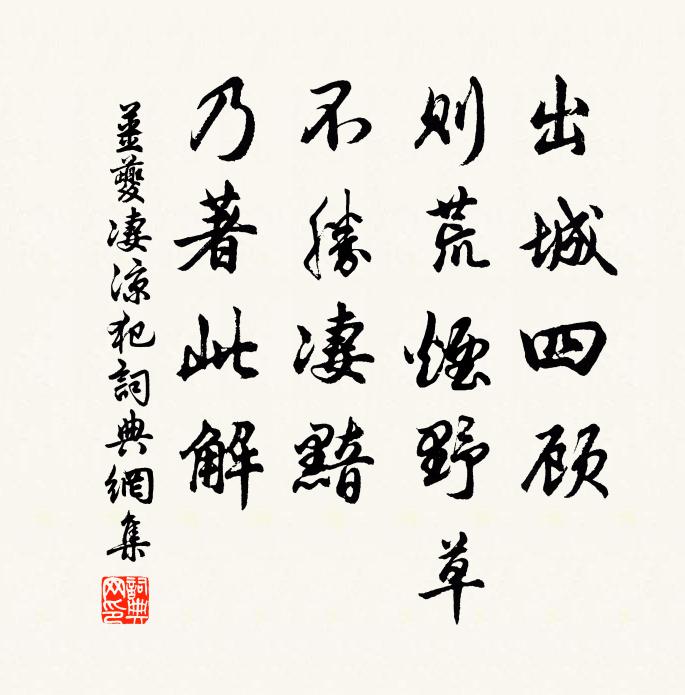 出城四顾
则荒煙野草
不勝凄黯
乃著此解
姜夔凄凉犯詞典網集
詞典网印